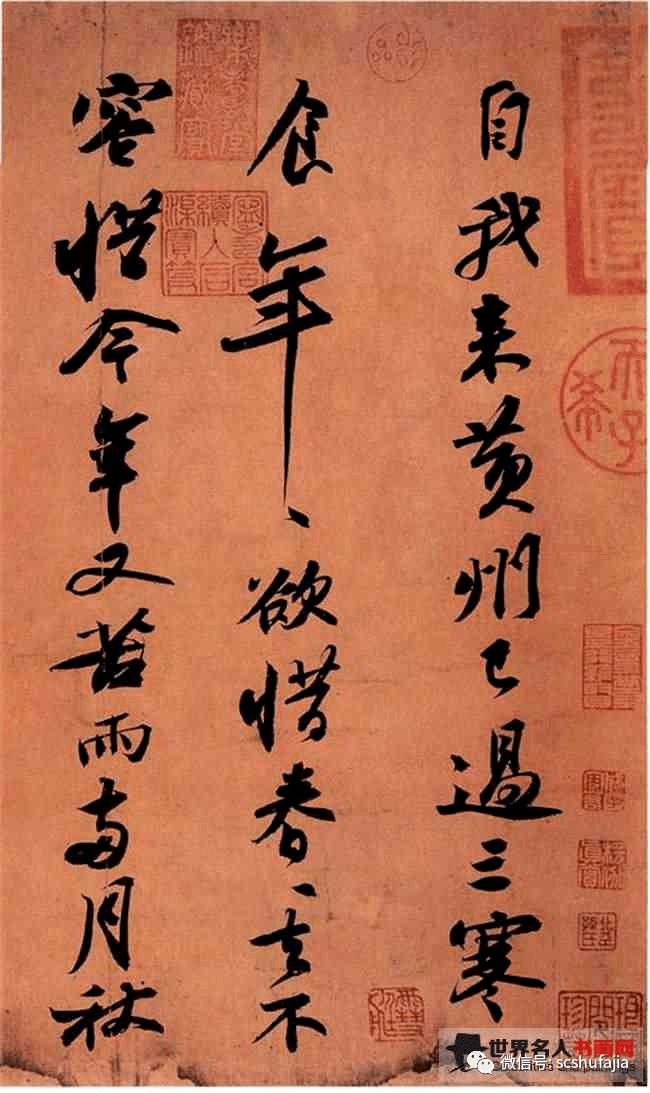 自我来黄州已過三寒
食年〻欲惜春〻去不
容惜今年又苦雨兩月秋
天子
希
世界名人书画网
微信号: scshufajia